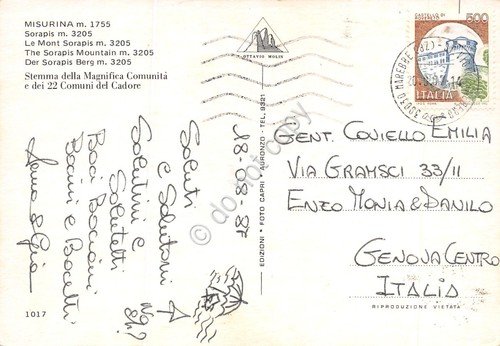 MISURINA m. 1755
Sorapis m. 3205
Le Mont Sorapis m. 3205
The Sorapis Mountain m. 3205
Der Sorapis Berg m. 3205
Stemma della Magnifica Comunità
e dei 22 Comuni del Cadore
OTTAVIO MOLIN
500
ITALIA
MAREBBE (BZ)
18-08-87
Saluti
e Salutoni
Salutini e
Salutetti
Baci Bacioni
Bacini e Bacetti
Anna &
1017
EDIZIONI * FOTO CAPRI - AURONZO - TEL. 9321
GENT. COVIELLO EMILIA
VIA GRAMSCI 33/11
ENZO MONIA & DANILO
GENOVA CENTRO
ITALIA
RIPRODUZIONE VIETATA
do not copy